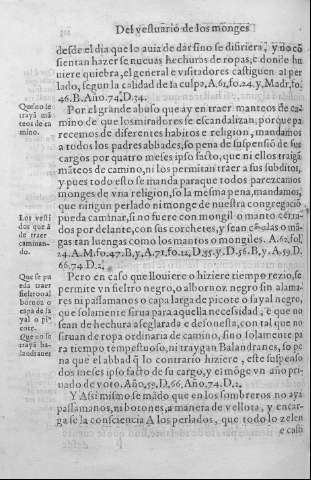 Del vestuario de los monges
desde el dia que lo auia de dar sino se difiriera, y no cõ
sientan hazer se nueuas hechuras de ropas, e donde hu
uiere quiebra, el general e visitadores castiguen al per
lado, segun la calidad de la culpa, A. 61. fo. 24. y, Madr, fo.
46. B. Año. 74, D. 34.
Que no se
trayã mã
teos de ca
mino.
Por el grande abuso que ay en traer manteos de ca-
mino de que los miradores se escandalizan, porque pa
recemos de diferentes habitos e religion, mandamos
a todos los padres abbades, so pena de suspensiõ de sus
cargos por quatro meses ipso facto, que ni ellos traigã
mãteos de camino, ni los permitan traer a sus subditos,
y pues todo esto se manda paraque todos parezcamos
monges de vna religion, so la mesma pena, mandamos,
que ningun perlado ni monge de nuestra congregaciõ
Los vesti
dos que ã
de traer
caminan-
do.
pueda caminar, si no fuere con mongil o manto cerra-
dos por delante, con sus corchetes, y sean cõ alas o mã-
gas tan luengas como los mantos o mongiles. A. 62, fol,
24. A. M. fo. 47. B. y, A. 71. fo. 21, D. 35. y. D. 56. B, y, A. 59. D.
66. 74 D. 2.
Que se pu
eda traer
fieltro o al
bornoz o
capa de sa
yal o pi-
cote.
Que no se
trayã ba-
landranes
Pero en caso que llouiere o hiziere tiempo rezio, se
permite vn fieltro negro, o albornoz negro sin alama-
res ni passamanos o capa larga de picote o sayal negro,
que solamente sirua para aquella necessidad, e que no
sean de hechura aseglarada e desonesta, con tal que no
siruan de ropa ordinaria de camino, sino solamente pa
ra tiempo tempestuoso, ni traygan Balandranes, so pe
na que el abbad q̃ lo contrario hiziere, este suspenso
dos meses ipso facto de su cargo, y el mõge vn año pri-
uado de voto. Año, 59. D. 66, Año. 74. D. 2.
Y Assi mismo se mãdo que en los sombreros no aya
passamanos, ni botones, a manera de vellota, y encar-
ga se la consciencia A los perlados, que todo lo zelen
e casti